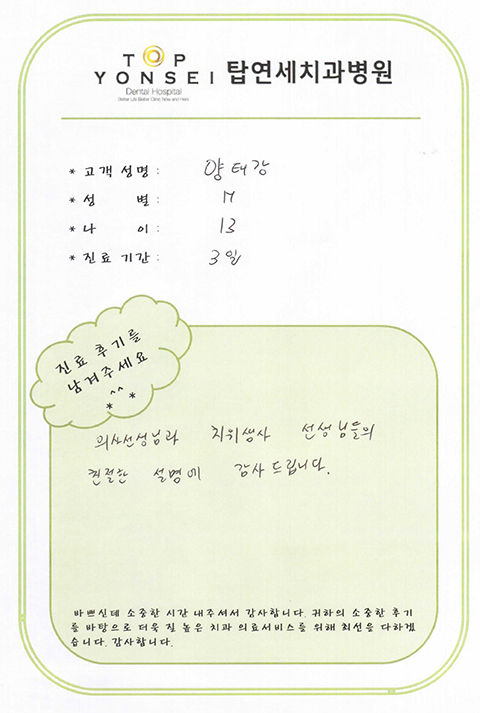 TOP
YONSEI 탑연세치과병원
Dental Hospital
Better Life Better Clinic Now and Here
* 고객 성명 : 양태강
* 성 별 : M
* 나 이 : 13
* 진료 기간 : 3일
진료 후기를
남겨주세요
^^
* *
의사선생님과 치위생사 선생님들의
친절한 설명에 감사드립니다.
바쁘신데 소중한 시간 내주셔서 감사합니다. 귀하의 소중한 후기
를 바탕으로 더욱 질 높은 치과 의료서비스를 위해 최선을 다하겠
습니다. 감사합니다.